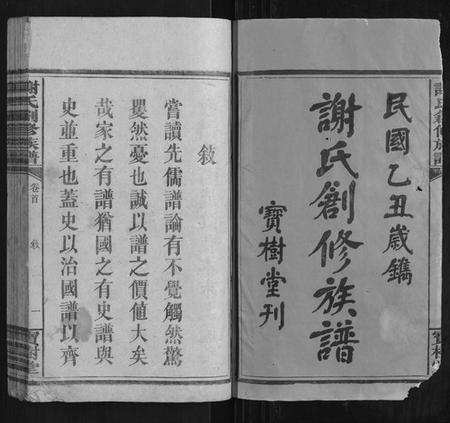 民國乙丑歲鐫
謝氏創修族譜
寶樹堂刊
敘
嘗讀先儒譜論有不覺觸然驚
瞿然憂也誠以譜之價值大矣
哉家之有譜猶國之有史譜與
史並重也蓋史以治國譜以齊
謝氏創修族譜
卷首
敘
一
寶樹堂